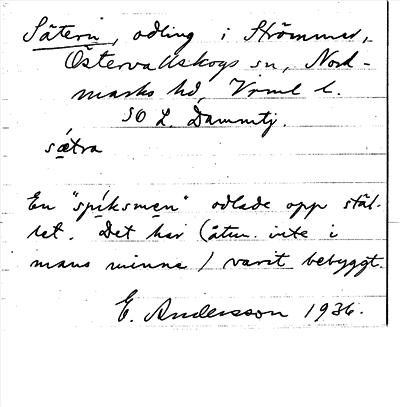 Sätern, odling i Strömmed,
Östervallskogs sn, Nord-
marks hd, Vrml l.
SO L. Dammtj.
sǽtra
En "spíksmẹn" odlade opp stäl-
let. Det har (åtm. inte i
mans minne) varit bebyggt.
E. Andersson 1936.